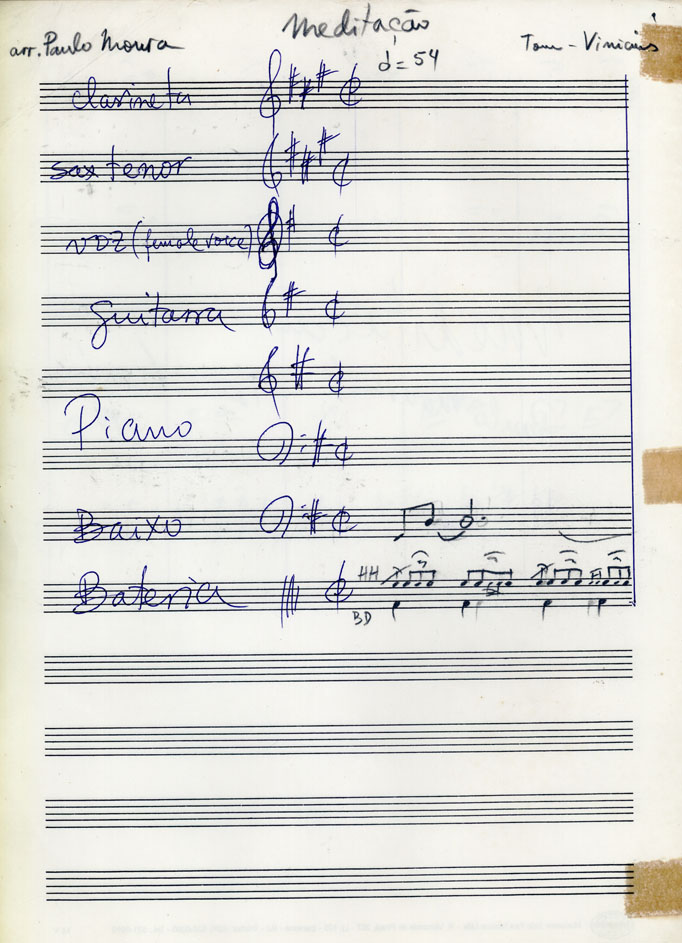 meditação
arr. Paulo Moura
Tom - Vinicius
= 54
clarineta
sax tenor
voz (female voice)
guitarra
Piano
Baixo
Bateria
HH
BD